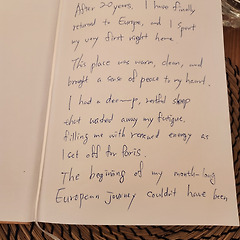 After 20 years, I have finally
returned to Europe, and I spent
my very first night here
This place was warm, clean, and
brought a sense of peace to my heart.
I had a deep, restful sleep
that washed away my fatigue,
filling me with renewed energy as
I set off for Paris.
The beginning of my month-long
European journey couldn't have been